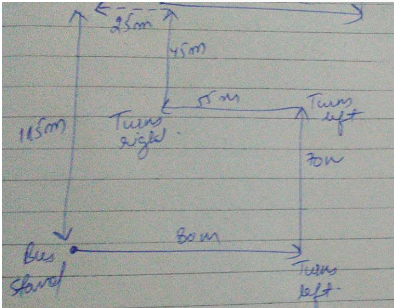 25m
45m
55m
Turns
left
Turns
right
115m
70m
80m
Bus
Stand
Turns
left